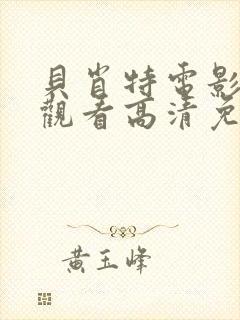 貝肖特電影
觀看高清免
黃玉峰